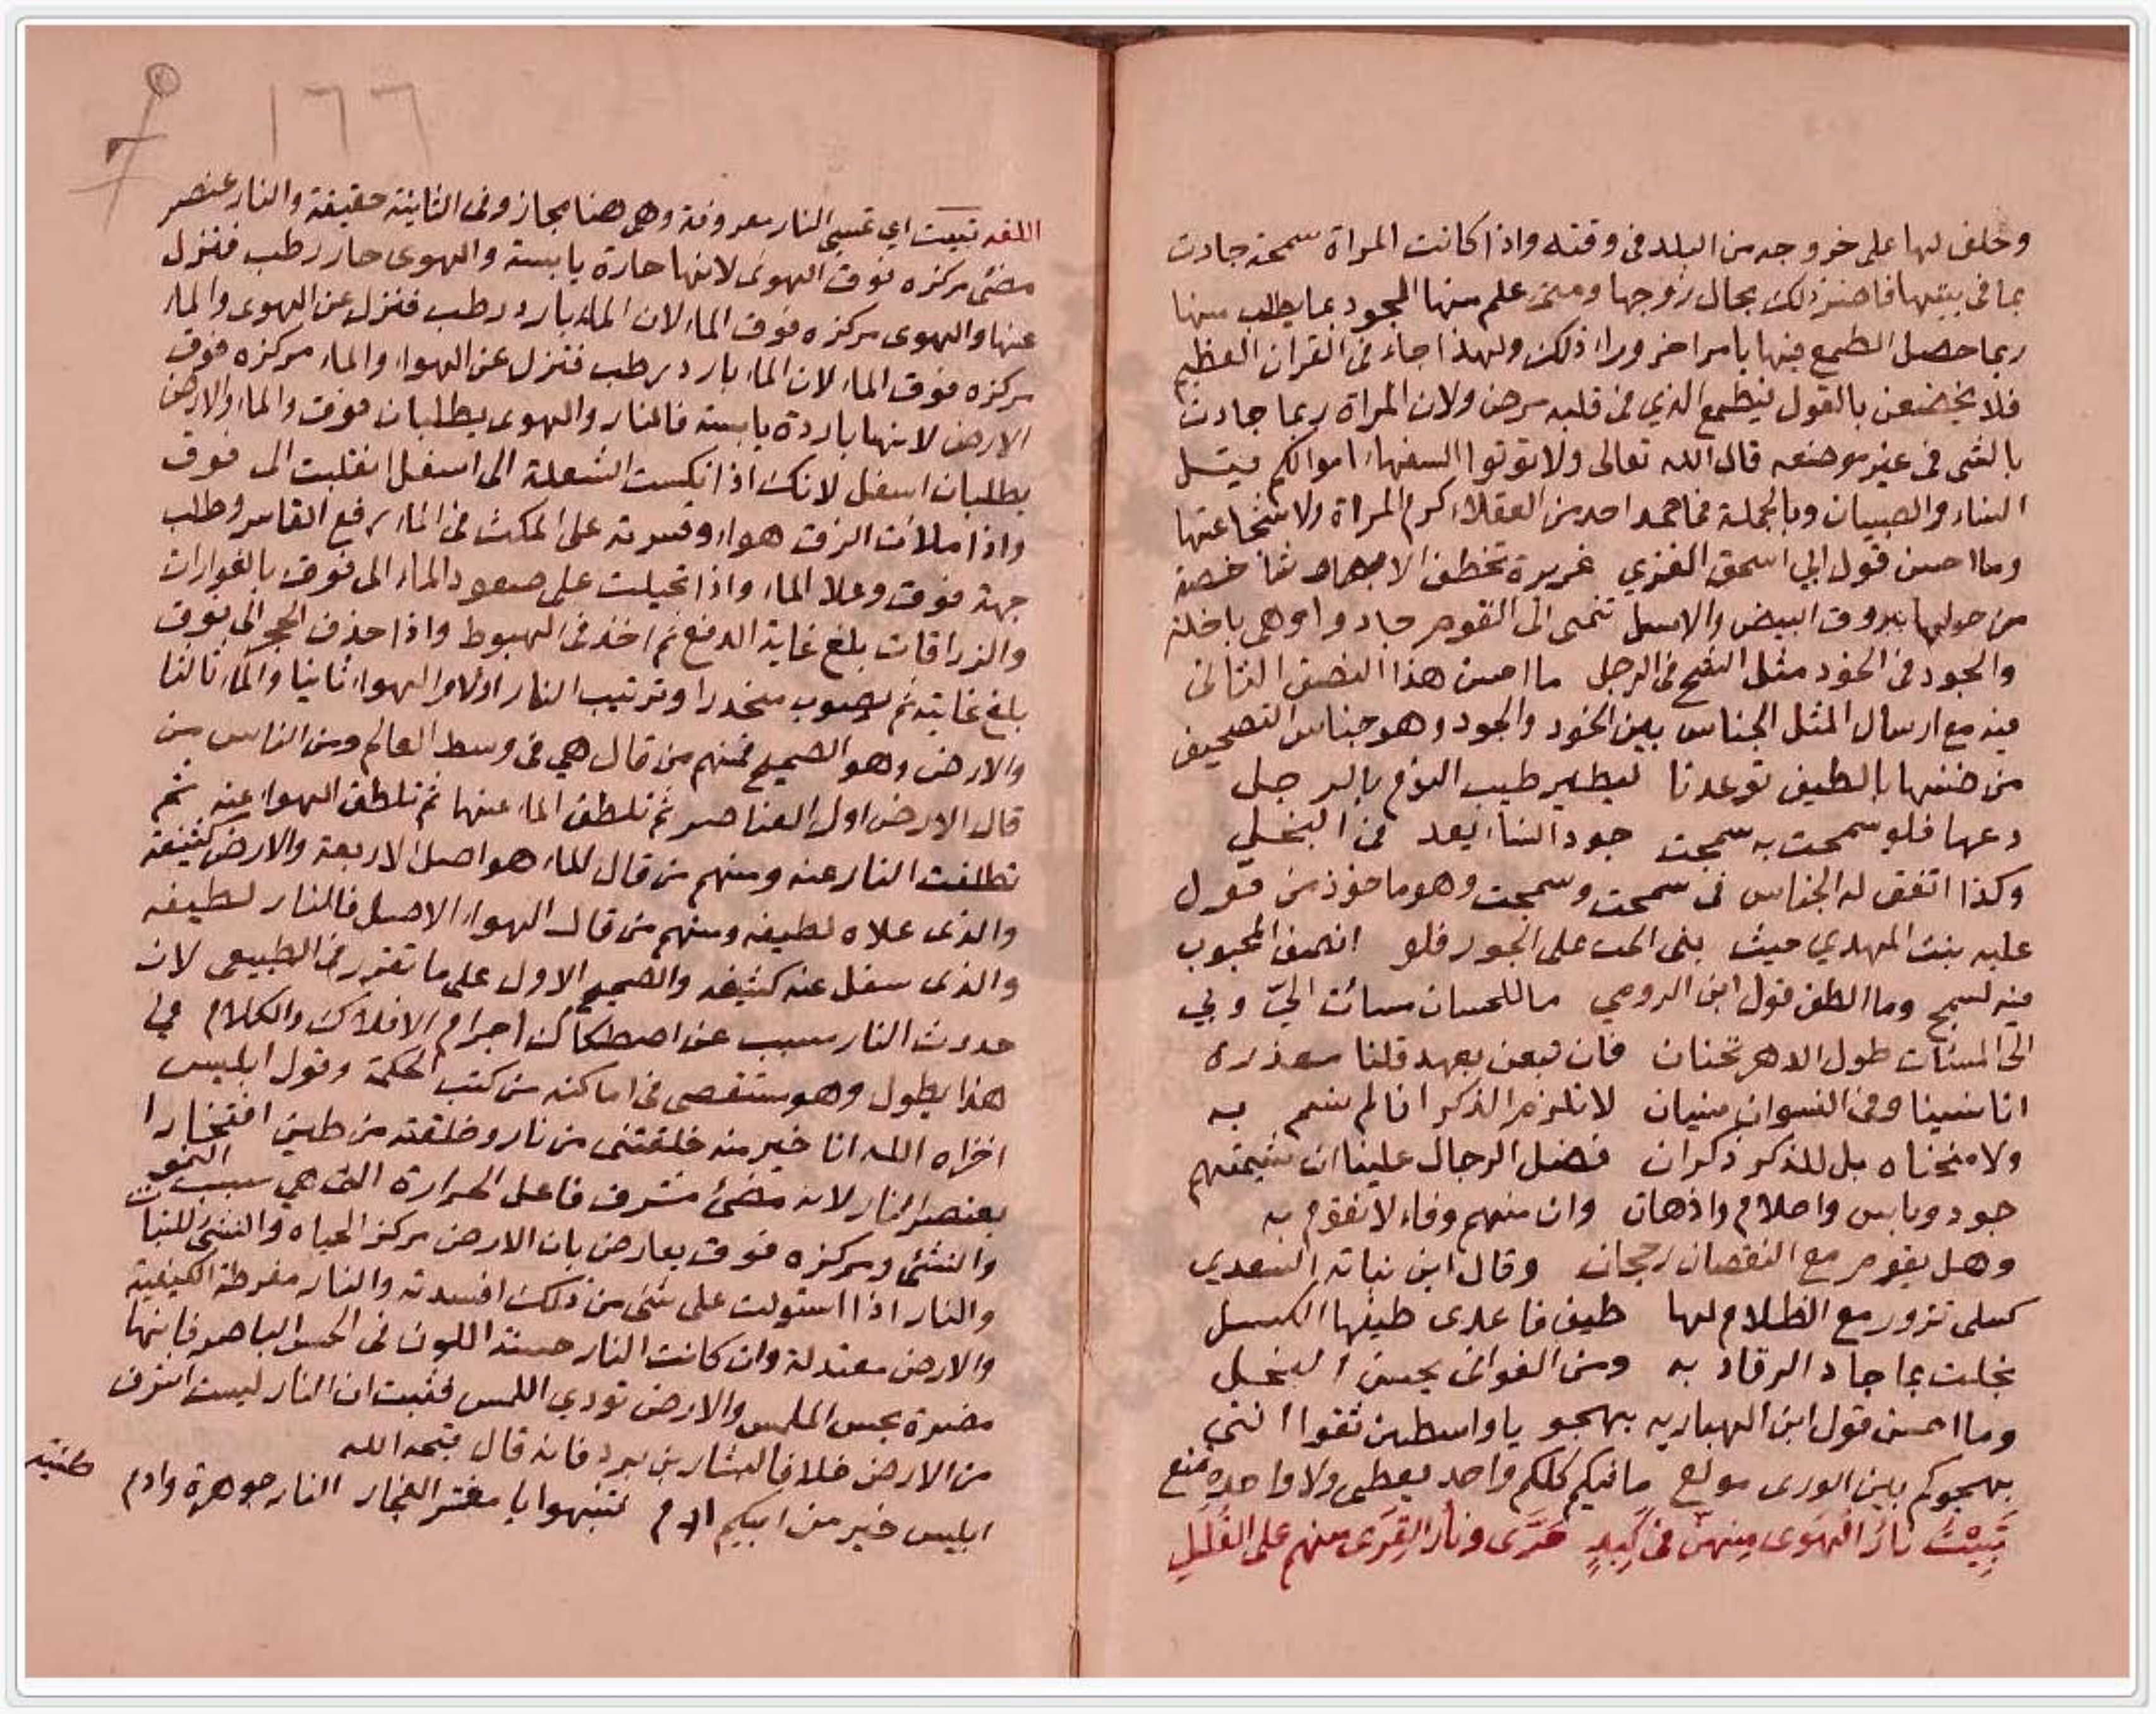 وحلف لها على خروجه من البلد فى وقته واذا كانت المراة سمحة جادت
بما فى بيتها فاضر ذلك بحال زوجها ومتى علم منها الجود بما يطلب منها
ربما حصل الطمع فيها بامر اخر وراء ذلك ولهذا جاء فى القران العظيم
فلا تخضعن بالقول فيطمع الذي فى قلبه مرض ولان المراة ربما جادت
بالشى فى غير موضعه قال الله تعالى ولا توتوا السفهاء اموالكم قيل
النساء والصبيان وبالجملة فما حمد احد من العقلاء كرم المراة ولا شجاعتها
وما احسن قول ابي اسحق الغزي غريرة تخطف الابصار شاخصة
من حولها بروق البيض والاسل تنمى الى القوم جادوا وهى باخلة
والجود فى الخود مثل الشح فى الرجل ما احسن هذا النصف الثانى
فيه مع ارسال المثل الجناس بين الخود والجود وهو جناس التصحيف
من ضنها بالطيف توعدنا ليطير طيب النوم بالرجل
دعها فلو سمحت به سمجت جود النساء يعد فى البخل
وكذا اتفق له الجناس فى سمحت وسمجت وهو ماخوذ من قول
علية بنت المهدي حيث بنى الحب على الجور فلو انصف المحبوب
فيه لسمج وما الطف قول ابن الرومي ما للحسان مسائت الي وبي
الى المسئات طول الدهر تحنان فان تبعن بعهد قلنا معذرة
انا نسينا وفى النسوان نسيان لا تلزم الذكر انا لم نسم به
ولا منحناه بل للذكر ذكران فضل الرجال علينا ان شيمتهم
جود وباس واحلام واذهان وان منهم وفاء لا نقوم به
وهل يقوم مع النقصان رجحان وقال ابن نباته السعدي
كسلى تزور مع الظلام لها طيف فاعدى طيفها الكسل
بخلت بما جاد الرقاد به ومن الغوانى يحسن البخل
وما احسن قول ابن الهباريه يهجو يا واسطين ثقوا اننى
بهجوكم بين الورى مولع ما فيكم كلكم واحد يعطى ولا واحدة تمنع
تَبِيْتُ نارُ الهَوى مِنهنّ فى كَبِدٍ حَرَّى ونارُ القِرَى منهم على القُلَلِ
اللغه تبيت اي تمسى النار معروفة وهى هنا مجاز وفى الثانية حقيقة والنار عنصر
مضئ مركزه فوق الهوى لانها حارة يابسة والهوى حار رطب فنزل
عنها والهوى مركزه فوق الماء لان الماء بارد رطب فنزل عن الهوى والماء
مركزه فوق الماء لان الماء بارد رطب فنزل عن الهواء والماء مركزه فوق
الارض لانها باردة يابسة فالنار والهوى يطلبان فوق والماء والارض
يطلبان اسفل لانك اذا نكست الشعلة الى اسفل انقلبت الى فوق
واذا ملات الزق هواء وقسرته على المكث فى الماء رفع القاسر وطلب
جهة فوق وعلا الماء واذا تحيلت على صعود الماء الى فوق بالفوارات
والزراقات بلغ غاية الدفع ثم اخذ فى الهبوط واذا حذف الحجر الى فوق
بلغ غايته ثم يصوب منحدرا وترتيب النار اولا والهواء ثانيا والماء ثالثا
والارض وهو الصحيح فمنهم من قال هي فى وسط العالم ومن الناس من
قال الارض اول العناصر ثم تلطف الماء عنها ثم تلطف الهواء عنه ثم
تطلفت النار عنه ومنهم من قال الماء هو اصل الاربعة والارض كثيفة
والذى علاه لطيفه ومنهم من قال الهواء الاصل فالنار لطيفه
والذى سفل عنه كثيفه والصحيح الاول على ما تقرر فى الطبيعى لان
حدوث النار سبب عن اصطكاك اجرام الافلاك والكلام في
هذا يطول وهو مستقصى فى اماكنه من كتب الحكمة وقول ابليس
اخزاه الله انا خير منه خلقتنى من نار وخلقته من طين افتخارا
بعنصر النار لانه مضئ مشرف فاعل الحرارة التى هي سبب النمو
والنشئ ومركزه فوق يعارض بان الارض مركز الحياه والنشئ للنبات
والنار اذا استولت على شئ من ذلك افسدته والنار مفرطة الكيفية
والارض معتدلة وان كانت النار حسنة اللون فى الحس الباصر فانها
مضرة بحس الملمس والارض تودي اللمس فثبت ان النار ليست اشرف
من الارض خلافا لبشار بن برد فانه قال قبحه الله
ابليس خير من ابيكم ادم فتنبهوا يا معشر الفجار النار جوهرة وادم
طينه
١٦٦